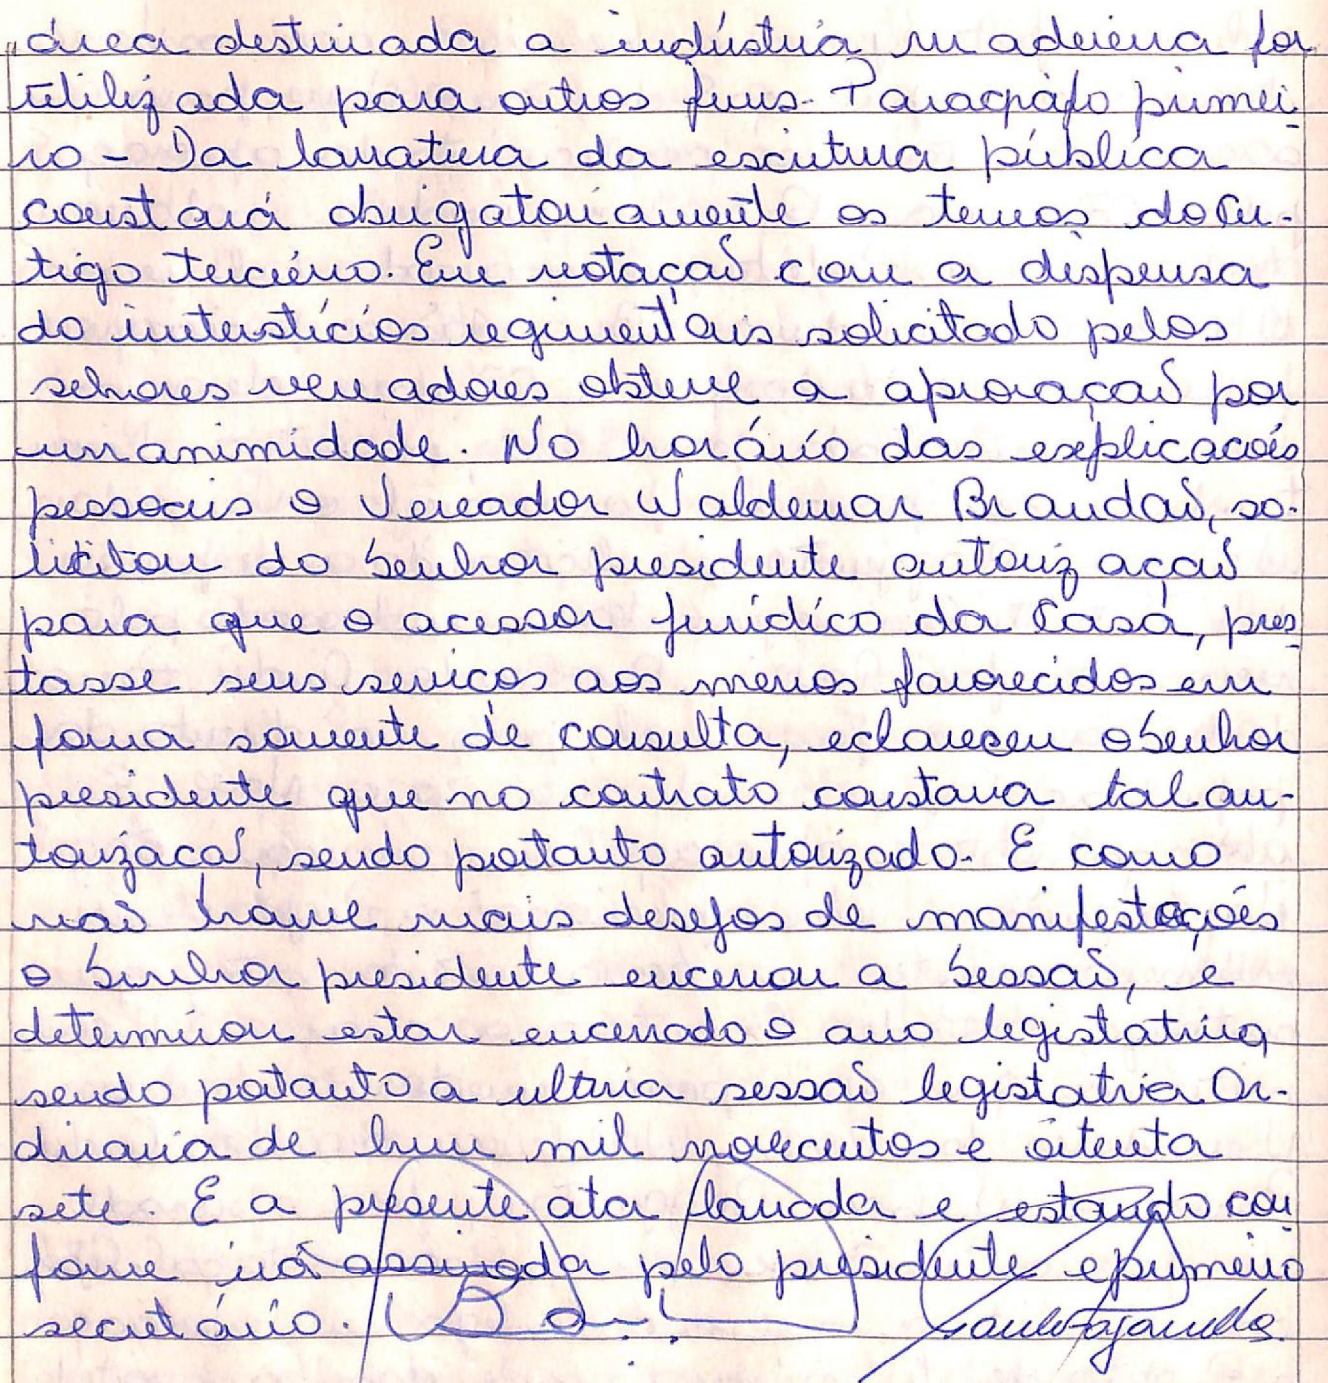 área destinada a indústria madeireira for
utilizada para outros fins. Paragráfo primei
ro - Da lavratura da escritura pública
constará obrigatoriamente os termos do Ar-
tigo terceiro. Em votação com a dispensa
do interstícios regimentais solicitado pelos
sehores vereadores obteve a aprovação por
unanimidade. No horário das explicacões
pessoais o Vereador Waldemar Brandão, so-
licitou do Senhor presidente autorização
para que o acessor jurídico da Casa, pres
tasse seus serviços aos menos favorecidos em
forma somente de consulta, eclareceu o Senhor
presidente que no contrato constava tal au-
torizacão, sendo portanto autorizado. E como
não houve mais desejos de manifestações
o Senhor presidente encerrou a Sessão, e
determinou estar encerrado o ano legistativo,
sendo portanto a ultima sessão legistativa Or-
dinaria de hum mil novecentos e oitenta
sete. E a presente ata lavrada e estando con
forme irá assinada pelo presidente e primeiro
secretário.